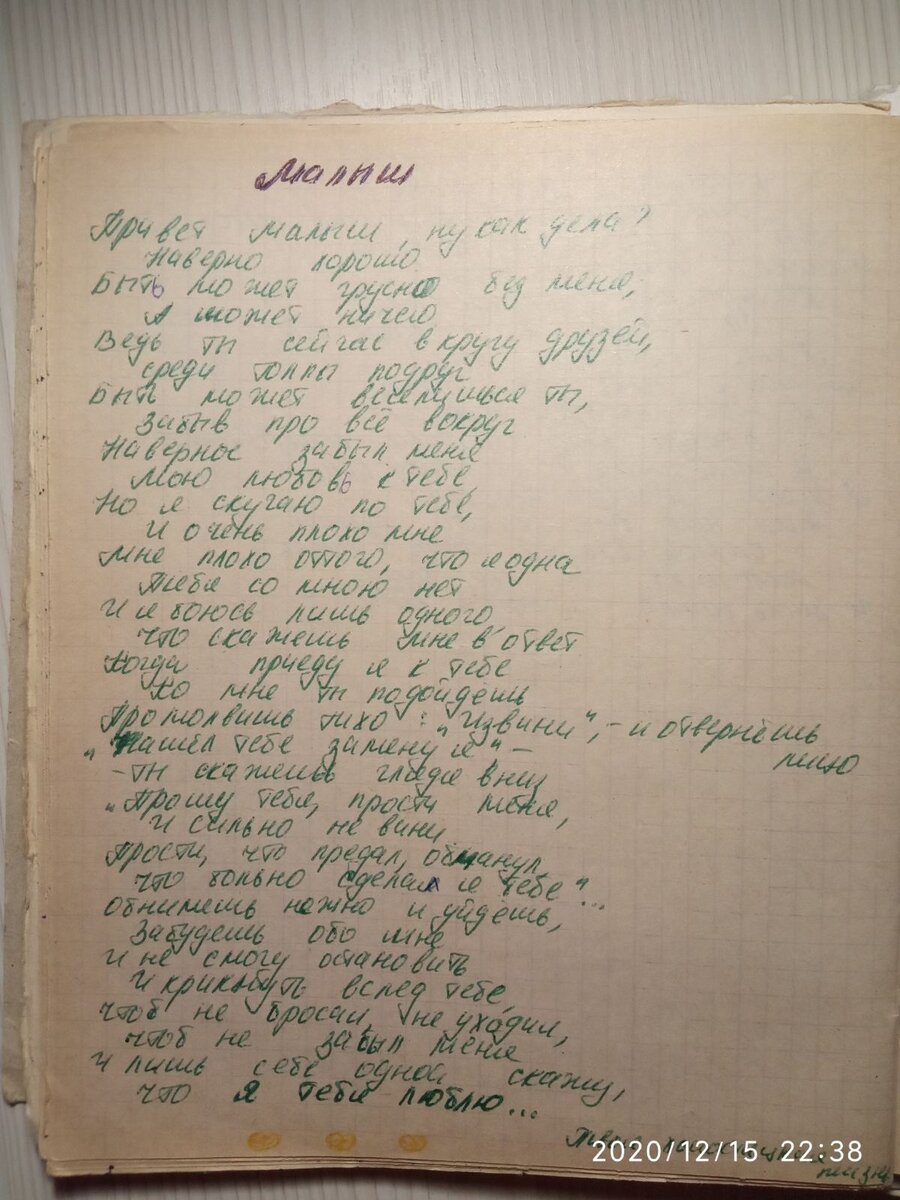 Малыш
Привет малыш, ну как дела?
Наверно хорошо
Быть может грустно без меня,
А может ничего
Ведь ты сейчас в кругу друзей,
среди толпы подруг
Быть может веселишься ты,
Забыв про всё вокруг
Наверное забыл меня
Мою любовь к тебе,
Но я скучаю по тебе,
И очень плохо мне
Мне плохо оттого, что я одна
Тебя со мною нет
И я боюсь лишь одного,
Что скажешь мне в ответ
Когда приеду я к тебе
Ко мне ты подойдёшь
Промолвишь тихо: „Извини", – и отвернёшь
лицо
„Нашёл тебе замену я" –
– ты скажешь глядя вниз
„Прошу тебя, прости меня,
И сильно не вини
Прости, что предал, обманул,
что больно сделал я тебе"...
Обнимешь нежно и уйдёшь,
Забудешь обо мне
И не смогу остановить
И крикнуть вслед тебе,
Чтоб не бросал, не уходил,
чтоб не забыл меня
И лишь себе одной скажу,
что я тебя люблю...
2020/12/15 22:38